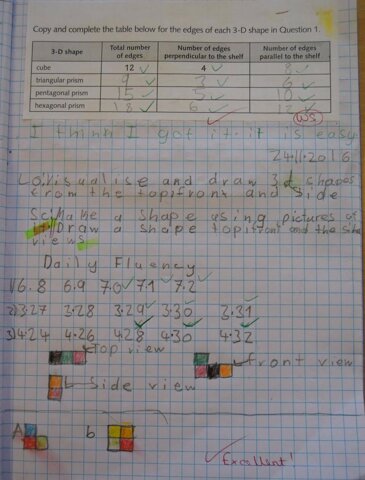 Copy and complete the table below for the edges of each 3-D shape in Question 1.
3-D shape Total number of edges Number of edges perpendicular to the shelf Number of edges parallel to the shelf
cube 12 4 8
triangular prism 9 3 6
pentagonal prism 15 5 10
hexagonal prism 18 6 12
WS
I think I got it. it is easy
24.11.2016
L.O. Visualise and draw 3d shapes
from the top, front and side
S.c: Make a shape using pictures of
Draw a shape top, front and the side
views
Daily Fluency
1) 6.8 6.9 7.0 7.1 7.2
2) 3.27 3.28 3.29 3.30 3.31
3) 4.24 4.26 4.28 4.30 4.32
top view
front view
Side view
A b
Excellent!